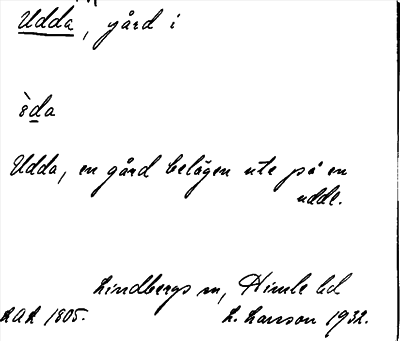 Udda, gård i
Udda, en gård belägen ute på en
udde.
Lindbergs sn, Himle hd
LAL 1805. L. Larsson 1932.